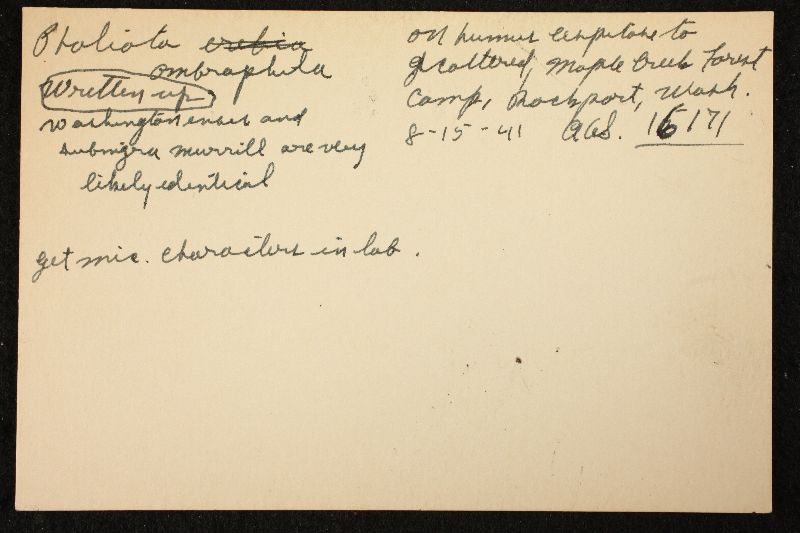 Pholiota erebia
ombrophila
Written up
washingtonensis and
submigra murrill are very
likely identical
get mic. characters in lab.
on humus cespitose to
scattered, Maple Creek Forest
Camp, Rockport, Wash.
8-15-41 AHS. 16171